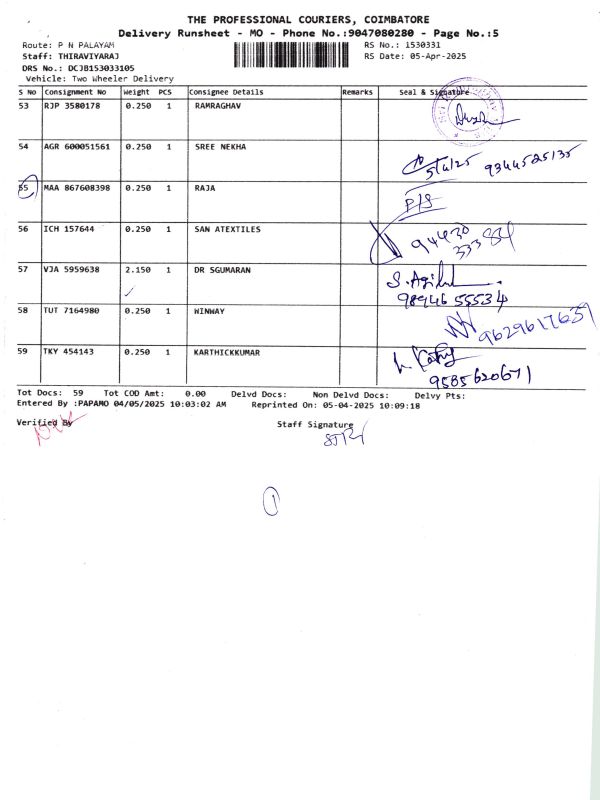 THE PROFESSIONAL COURIERS, COIMBATORE
Delivery Runsheet - MO - Phone No.:9047080280 - Page No.:5
Route: P N PALAYAM RS No.: 1530331
Staff: THIRAVIYARAJ RS Date: 05-Apr-2025
DRS No.: DCJB153033105
Vehicle: Two Wheeler Delivery
S No Consignment No Weight PCS Consignee Details Remarks Seal & Signature
53 RJP 3580178 0.250 1 RAMRAGHAV
54 AGR 600051561 0.250 1 SREE NEKHA
5/4/25 9344525135
55 MAA 867608398 0.250 1 RAJA
P/S
56 ICH 157644 0.250 1 SAN ATEXTILES
94430
333 84
57 VJA 5959638 2.150 1 DR SGUMARAN
9894655534
58 TUT 7164980 0.250 1 WINWAY
9629617639
59 TKY 454143 0.250 1 KARTHICKKUMAR
9585620671
Tot Docs: 59 Tot COD Amt: 0.00 Delvd Docs: Non Delvd Docs: Delvy Pts:
Entered By :PAPAMO 04/05/2025 10:03:02 AM Reprinted On: 05-04-2025 10:09:18
Verified By Staff Signature
1